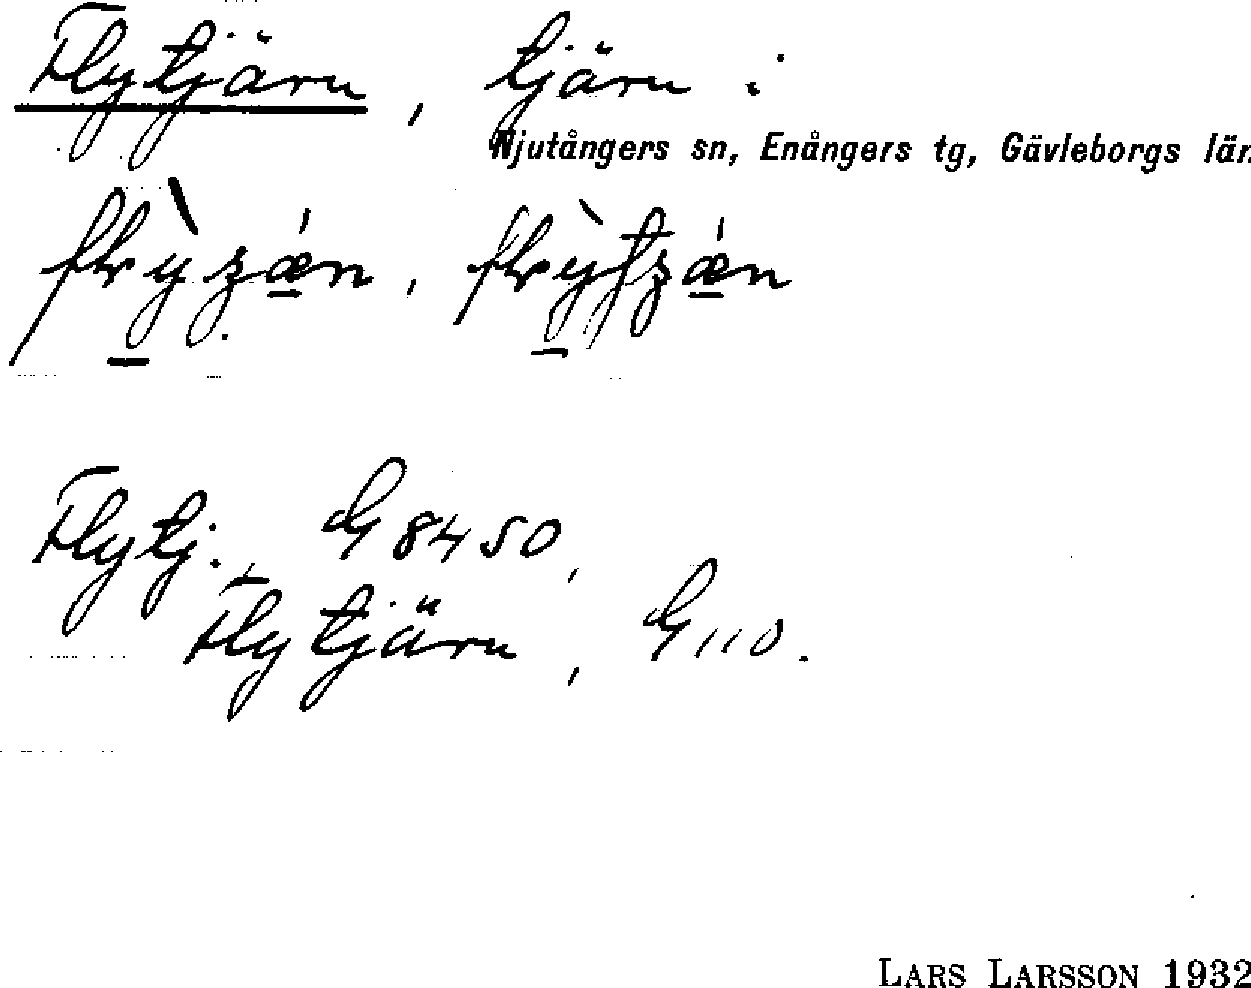 Flytjärn, tjärn i
Njutångers sn, Enångers tg, Gävleborgs län
Flytj., G 8450,
Flytjärn, G 110.
LARS LARSSON 1932